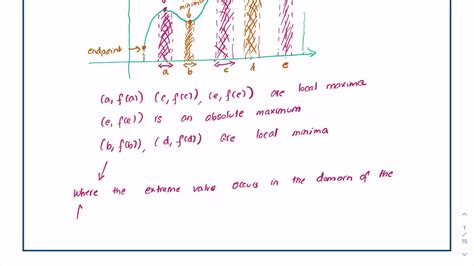 minimum
endpoint
a b c d e
(a, f(a)) (c, f(c)), (e, f(e)) are local maxima
(e, f(e)) is an absolute maximum
(b, f(b)), (d, f(d)) are local minima
Where the extreme value occurs in the domain of the
1
/
15